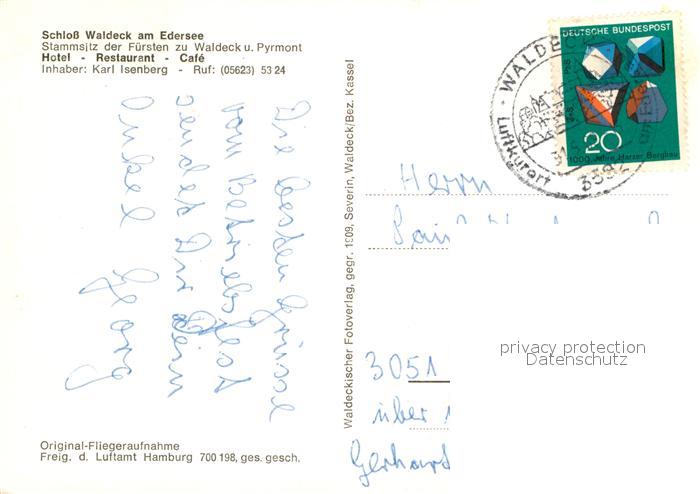 Schloß Waldeck am Edersee
Stammsitz der Fürsten zu Waldeck u. Pyrmont
Hotel - Restaurant - Café
Inhaber: Karl Isenberg - Ruf: (05623) 53 24
Die besten Grüsse
vom Betriebsfest
sendet Dir Dein
Onkel
Original-Fliegeraufnahme
Freig. d. Luftamt Hamburg 700 198, ges. gesch.
Waldeckischer Fotoverlag, gegr. 1909, Severin, Waldeck/Bez. Kassel
DEUTSCHE BUNDESPOST
PbS
20
1000 Jahre Harzer Bergbau
WALDECK
Luftkurort
3592
Herrn
3051
über
Gerhard
privacy protection
Datenschutz